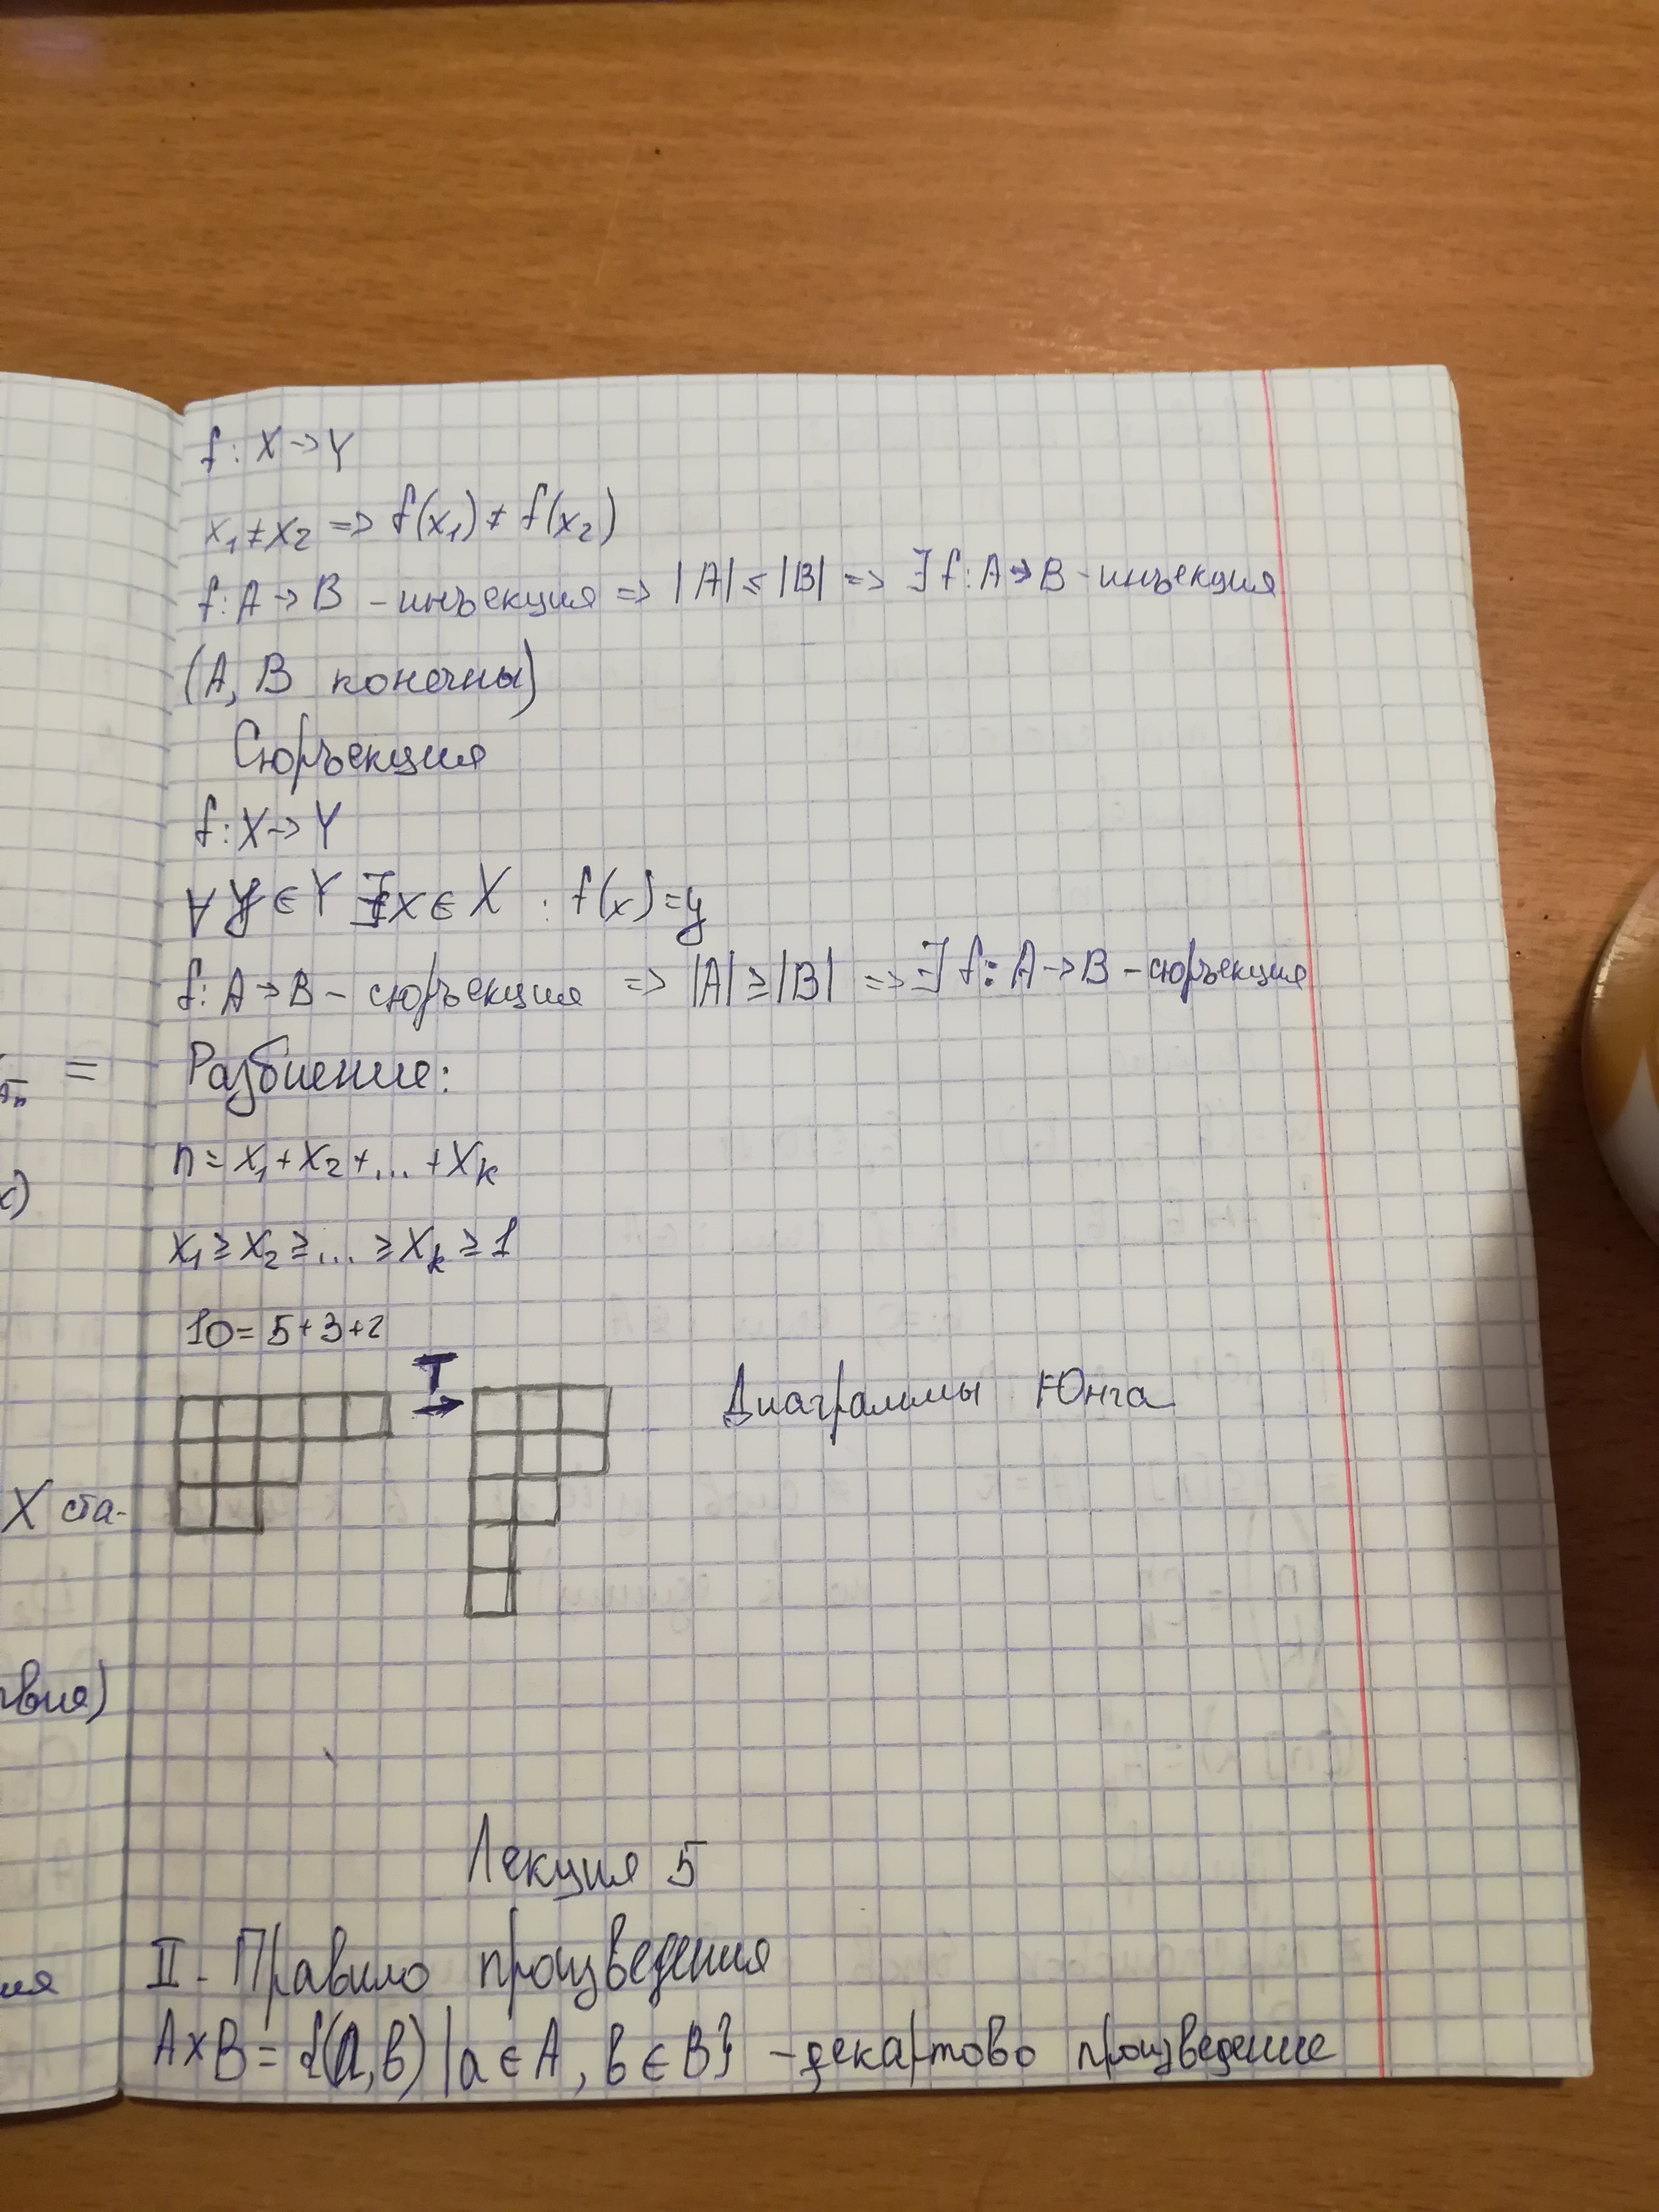 f: X → Y
x₁ ≠ x₂ => f(x₁) ≠ f(x₂)
f: A → B - инъекция => |A| ≤ |B| => ∃ f: A → B - инъекция
(A, B конечны)
Сюръекция
f: X → Y
∀ y ∈ Y ∃ x ∈ X : f(x) = y
f: A → B - сюръекция => |A| ≥ |B| => ∃ f: A → B - сюръекция
=
Разбиение:
n = x₁ + x₂ + ... + xₖ
x₁ ≥ x₂ ≥ ... ≥ xₖ ≥ 1
10 = 5 + 3 + 2
T
→
Диаграммы Юнга
X ста-
твия)
Лекция 5
II - Правило произведения
ия
A×B = {(a, b) | a ∈ A, b ∈ B} - декартово произведение